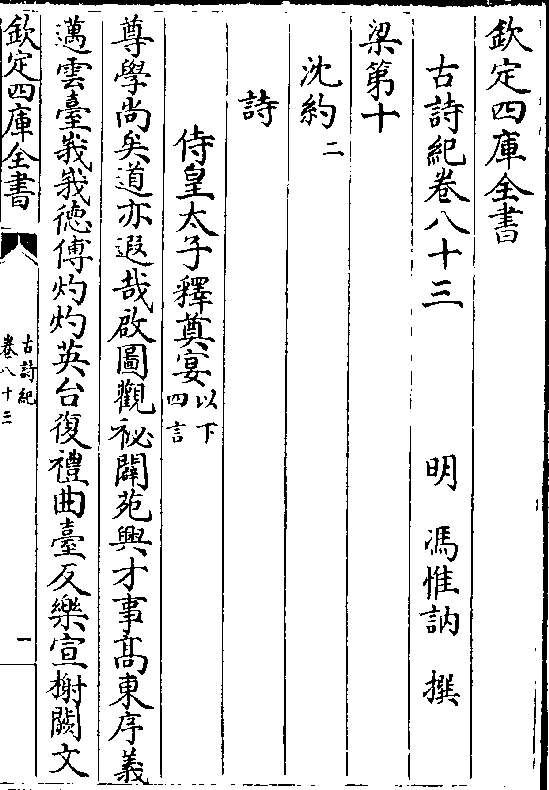 欽定四庫全書
古詩紀卷八十三 明 馮惟訥 撰
梁第十
沈約二
詩
侍皇太子釋奠宴以下四言
尊學尚矣道亦遐哉啟圖觀祕闢苑興才事髙東序義
邁雲臺峩峩德傅灼灼英台復禮曲臺反樂宣榭闕文
欽定四庫全書
古詩紀
卷八十三
一